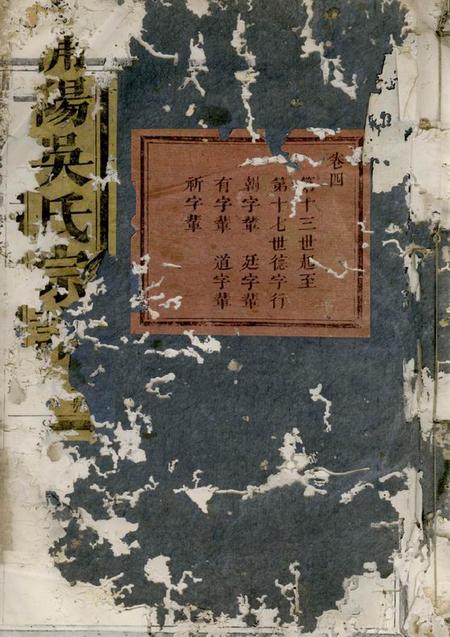 卷四
第十三世起至
第十七世德字行
朝字輩 廷字輩
有字輩 道字輩
祈字輩
陽吳氏宗